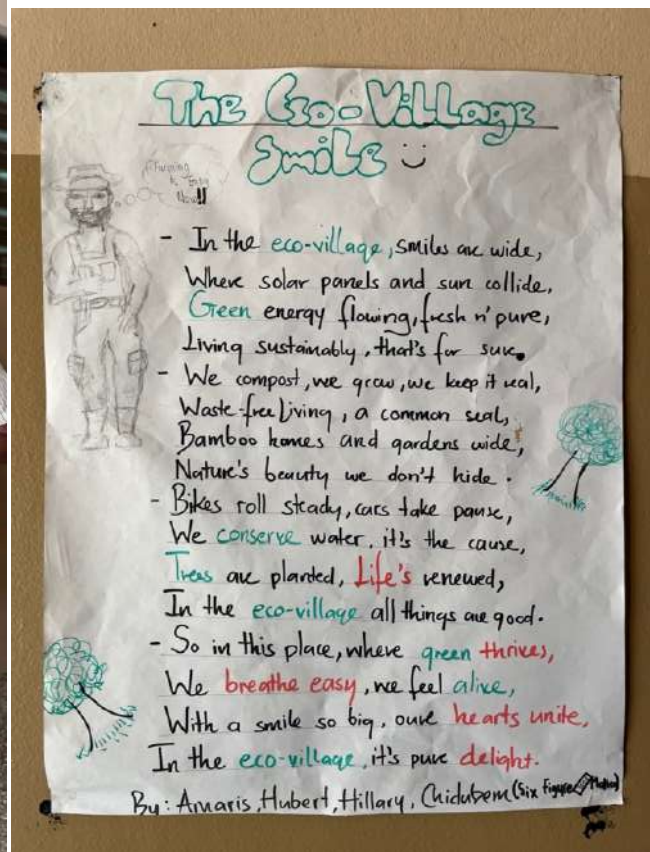 The Eco-Village
Smile
Farming
is Easy
Now!!
- In the eco-village, smiles are wide,
Where solar panels and sun collide,
Green energy flowing, fresh n' pure,
Living sustainably, that's for sure.
- We compost, we grow, we keep it real,
Waste-free living, a common seal,
Bamboo homes and gardens wide,
Nature's beauty we don't hide.
- Bikes roll steady, cars take pause,
We conserve water, it's the cause,
Trees are planted, Life's renewed,
In the eco-village all things are good.
- So in this place, where green thrives,
We breathe easy, we feel alive,
With a smile so big, oure hearts unite,
In the eco-village, it's pure delight.
By: Amaris, Hubert, Hillary, Chidubem (Six Figure